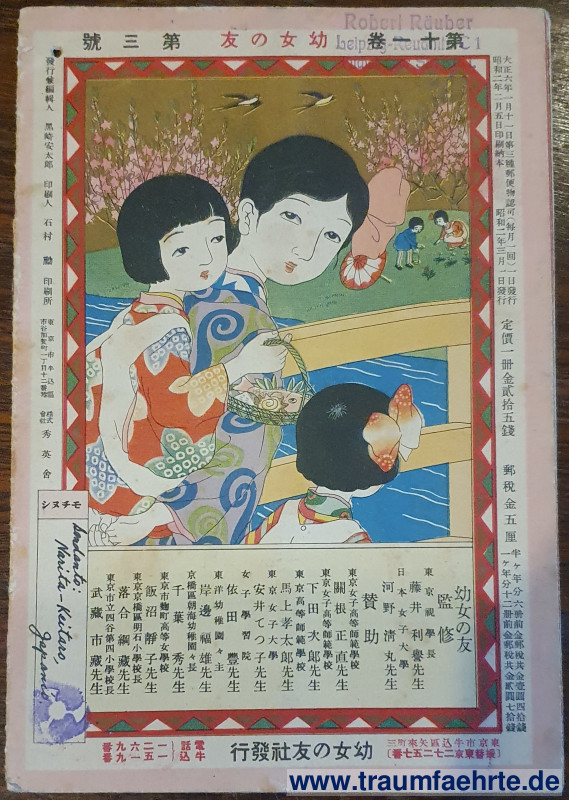 第十一卷 幼女の友 第三號
Robert Räuber
大正六年一月十一日第三種郵便物認可(每月一回)一日發行
昭和二年二月五日印刷納本 昭和二年三月一日發行
定價一冊金貳拾五錢 郵稅金五厘
半ケ年分六冊前金郵稅共金壹圓四拾錢
一ケ年分十二冊前金郵稅共金貳圓七拾錢
發行兼編輯人 黑崎安太郎 印刷人 石村 勳 印刷所
東京市牛込區
市谷加賀町一丁目十二番地
株式會社 秀英舍
シヌチモ
Sendanto:
Narita-Keitaro,
Japanio.
幼女の友
監修
東京視學長
藤井利譽先生
日本女子大學
河野清丸先生
贊助
東京女子高等師範學校
關根正直先生
東京女子高等師範學校
下田次郎先生
東京高等師範學校
馬上孝太郎先生
東京女子大學
安井てつ子先生
女子學習院
依田豐先生
東洋幼稚園々主
岸邊福雄先生
京橋區朝海幼稚園々長
千葉秀先生
東京市麴町高等女學校
飯沼靜子先生
東京市京橋區明石小學校長
落合綱藏先生
東京市立四谷第四小學校長
武藏市藏先生
東京市牛込區矢來町三
振替東京二二七五七番
幼女の友社發行
電話牛込
一二六九番
一五一九番
www.traumfaehrte.de